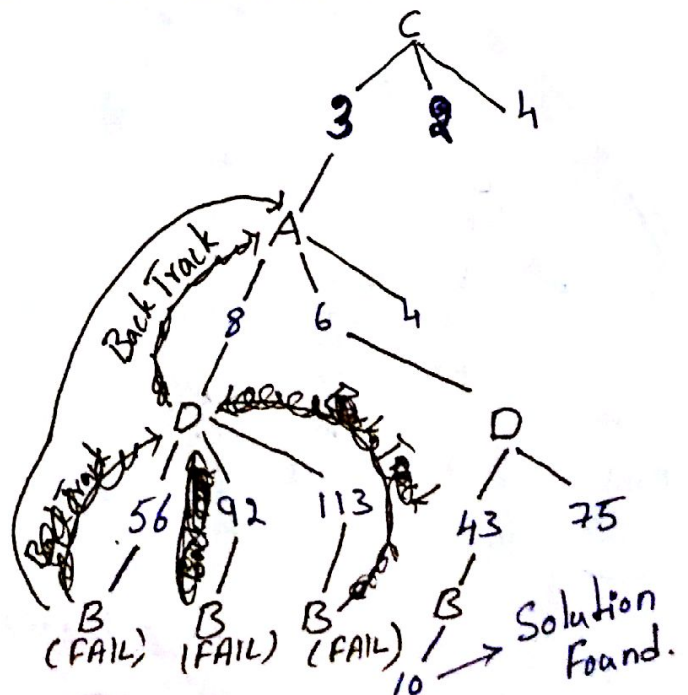 C
3 2 4
A
Back Track
8 6 4
D D
Back Track
56 92 113 43 75
B B B B
(FAIL) (FAIL) (FAIL)
10
Solution
Found.